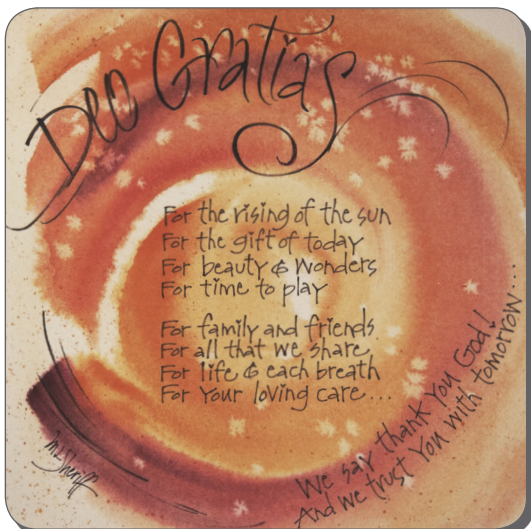 Deo Gratias
For the rising of the sun
For the gift of today
For beauty & wonders
For time to play
For family and friends
For all that we share
For life & each breath
For Your loving care...
We say thank You God!
And we trust You with tomorrow...